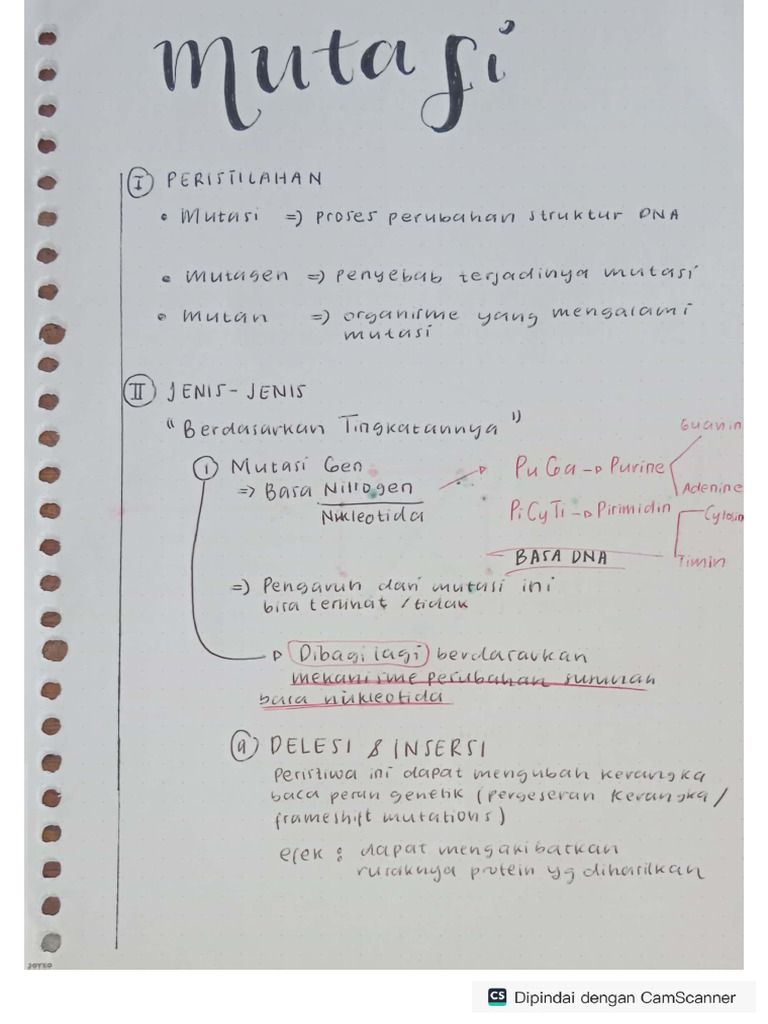 Mutasi
I PERISTILAHAN
• Mutasi => proses perubahan struktur DNA
• Mutagen => penyebab terjadinya mutasi
• Mutan => organisme yang mengalami
mutasi
II JENIS-JENIS
"Berdasarkan Tingkatannya"
Guanin
1 Mutasi Gen
PuGa → Purine
=> Basa Nitrogen
Adenine
Nukleotida
PiCyTi → Pirimidin
Cytosin
BASA DNA
Timin
=> Pengaruh dari mutasi ini
bisa terlihat / tidak
▷ Dibagi lagi berdasarkan
mekanisme perubahan susunan
basa nukleotida
a DELESI & INSERSI
Peristiwa ini dapat mengubah kerangka
baca pesan genetik (pergeseran kerangka /
frameshift mutations)
efek : dapat mengakibatkan
rusaknya protein yg dihasilkan
JOYKO
CS Dipindai dengan CamScanner